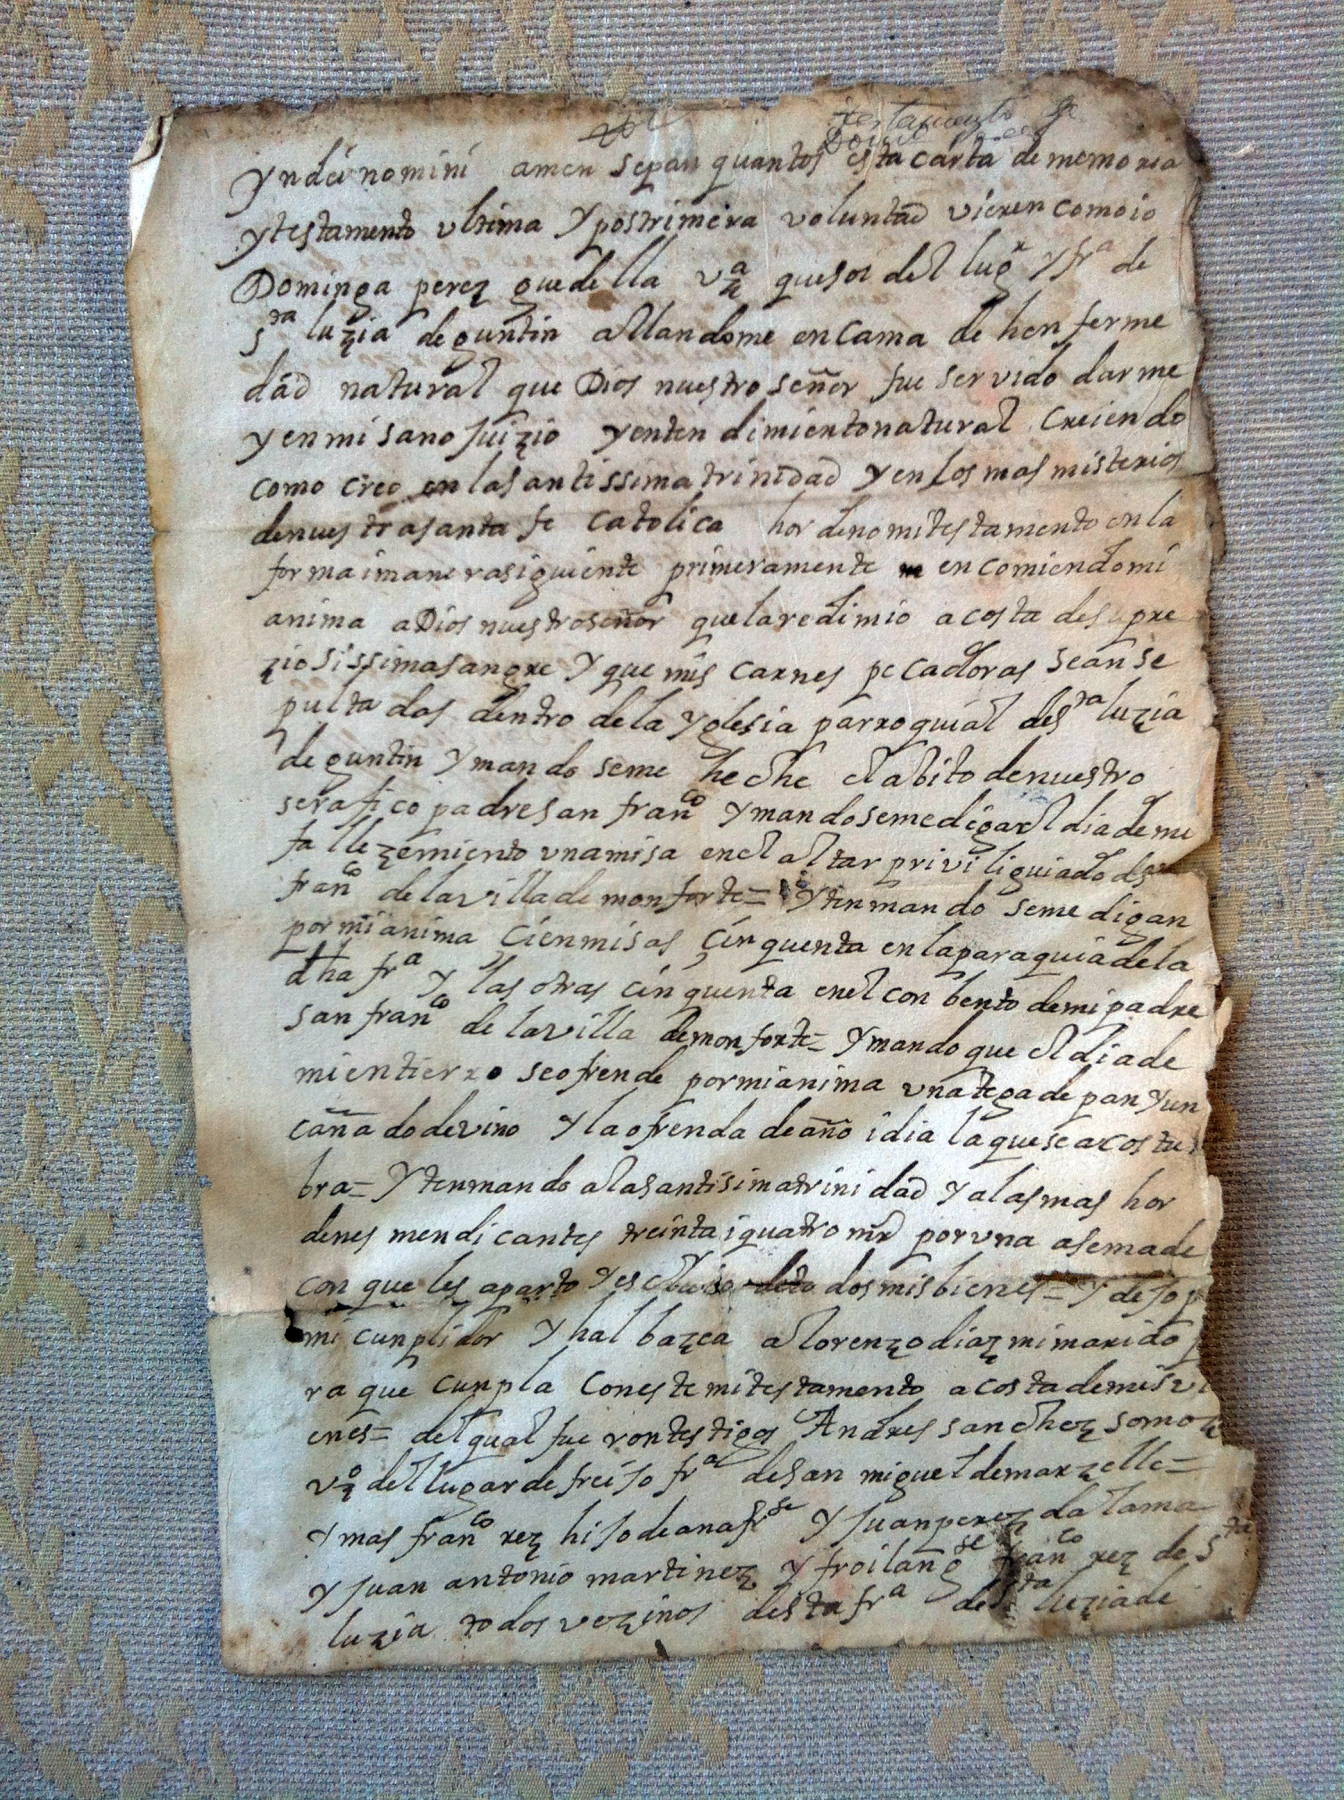 testamento de
Domin
Yn dei nomini amen sepan quantos esta carta de memoria
y testamento ultima y postrimera voluntad vieren como io
Dominga perez guedella vᵃ que soi del lugʳ y frᵃ de
Sᵗᵃ luzia de guntin allandome en cama de henferme
dad natural que Dios nuestro señor fue servido darme
y en mi sano juizio y entendimiento natural creiendo
como creo en la santissima trinidad y en los mas misterios
de nuestra santa fe catolica hordeno mi testamento en la
forma i manera siguiente primeramente encomiendo mi
anima a Dios nuestro señor que la redimio a costa de su pre
ziosissima sangre y que mis carnes pecadoras sean se
pultadas dentro de la yglesia parroquial de Sᵗᵃ luzia
de guntin y mando se me heche el abito de nuestro
serafico padre san franᶜᵒ y mando se me diga el dia de me
fallezemiento una misa en el altar priviliguiado de sⁿ
franᶜᵒ de la villa de monforte= yten mando se me digan
por mi anima cien misas cinquenta en la paraquia de la
dha frᵃ y las otras cinquenta en el conbento de mi padre
san franᶜᵒ de la villa de monforte= y mando que el dia de
mi entierro se ofrende por mi anima una tega de pan y un
cañado de vino y la ofrenda de año i dia la que se acostu
bra= Yten mando a la santisima trinidad y a las mas hor
denes mendicantes treinta i quatro mʳˢ por una asemade
con que les aparto y escluiso de todos mis bienes= y dejo p
mi cunplidor y halbazea a lorenzo diaz mi marido p
ra que cunpla con este mi testamento a costa de mis vi
enes= del qual fueron testigos Andres sanchez somoz
vᵒ del lugar de freijo frᵃ de san miguel de marzelle=
y mas franᶜᵒ rez hijo de ana y juan perez da lama
y juan antonio martinez y froilan franᶜᵒ rez de Sᵗᵃ
luzia todos vezinos desta frᵃ de Sᵗᵃ luzia de